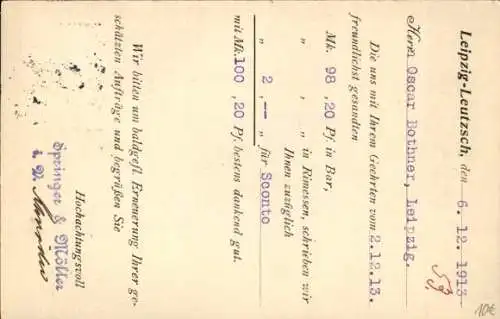 Leipzig-Leutzsch, den 6. 12. 1913
53
Herrn Oscar Bothner, Leipzig.
Die uns mit Ihrem Geehrten vom 2.12.13.
freundlichst gesandten
Mk. 98 ,20 Pf. in Bar,
„ „ in Rimessen, schrieben wir
Ihnen zuzüglich
„ 2 ,-- „ für Sconto
mit Mk. 100 ,20 Pf. bestens dankend gut.
Wir bitten um baldgefl. Erneuerung Ihrer ge-
schätzten Aufträge und begrüßen Sie
Hochachtungsvoll
Springer & Möller
10€